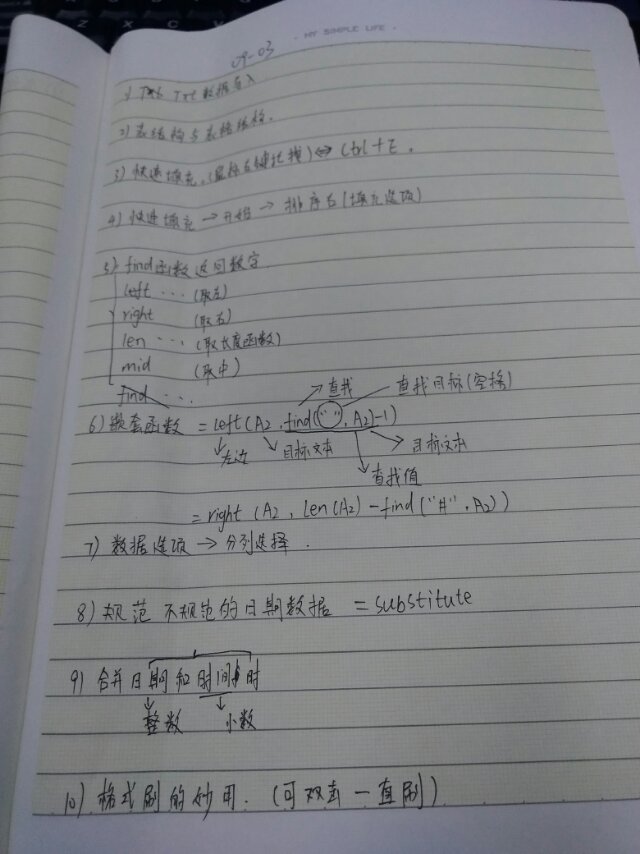 - MY SIMPLE LIFE -
09-03
1) Txt 数据导入
2) 表结构与表格结构.
3) 快速填充,(鼠标右键比找) ⇔ Ctrl + E.
4) 快速填充 → 开始 → 排序右(填充选项)
5) find函数 返回数字
left ... (取左)
right (取右)
len ... (取长度函数)
mid (取中)
find ...
→查找 查找目标(空格)
6) 嵌套函数 = left(A2, find(" ", A2)-1)
左边 目标文本 目标文本
查找值
= right (A2, len(A2) - find("#", A2))
7) 数据选项 → 分列选择.
8) 规范 不规范的日期数据 = substitute
9) 合并日期和时间 时
整数 小数
10) 格式刷的妙用. (可双击一直刷)